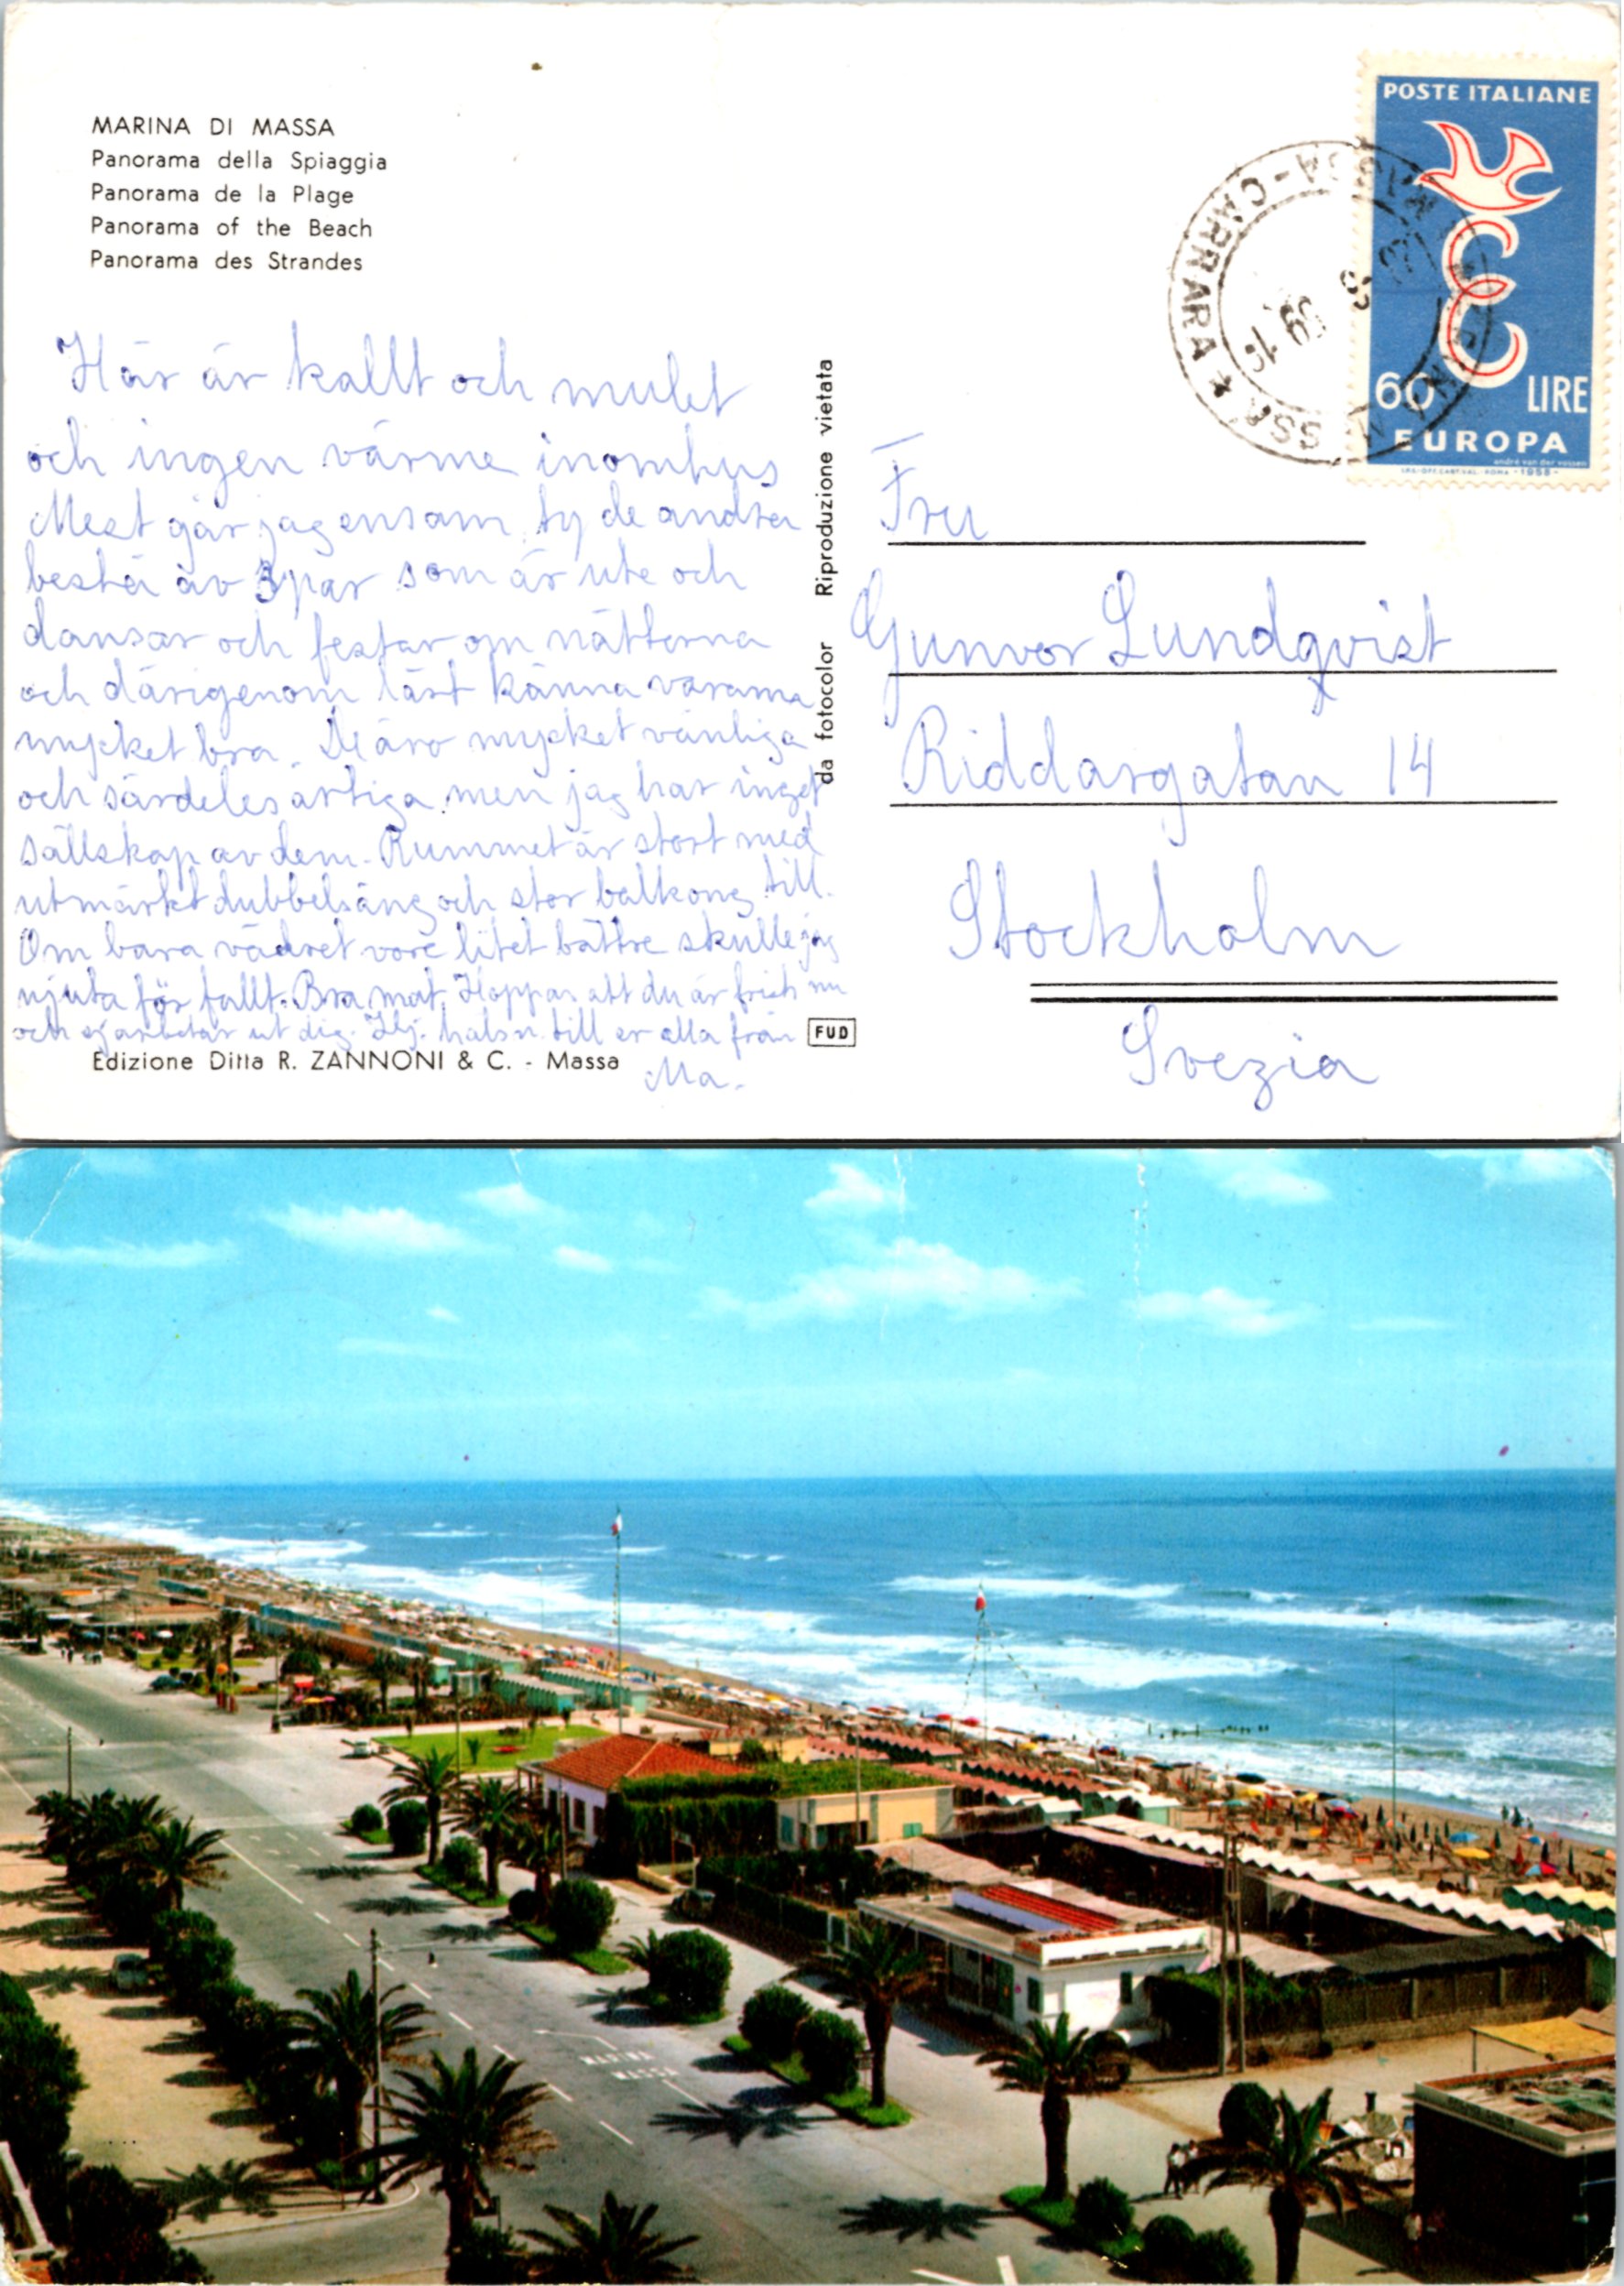 MARINA DI MASSA
Panorama della Spiaggia
Panorama de la Plage
Panorama of the Beach
Panorama des Strandes
Här är kallt och mulet
och ingen värme inomhus
Mest går jag ensam, ty de andra
består av 3 par som är ute och
dansar och festar om nätterna
och därigenom lärt känna varann
mycket bra. De äro mycket vänliga
och särdeles artiga men jag har inget
sällskap av dem. Rummet är stort med
utmärkt dubbelsäng och stor balkong till.
Om bara vädret vore litet bättre skulle jag
njuta för fullt. Bra mat. Hoppas att du är frisk nu
och ej arbetar ut dig. Hj. hälsn. till er alla från
Ma.
Edizione Ditta R. ZANNONI & C. - Massa
da fotocolor Riproduzione vietata
FUD
POSTE ITALIANE
60 LIRE
EUROPA
andré van der vossen
1958
MARINA MASSA
MASSA-CARRARA
Fru
Gunvor Lundqvist
Riddargatan 14
Stockholm
Svezia
MARINA
MASSA